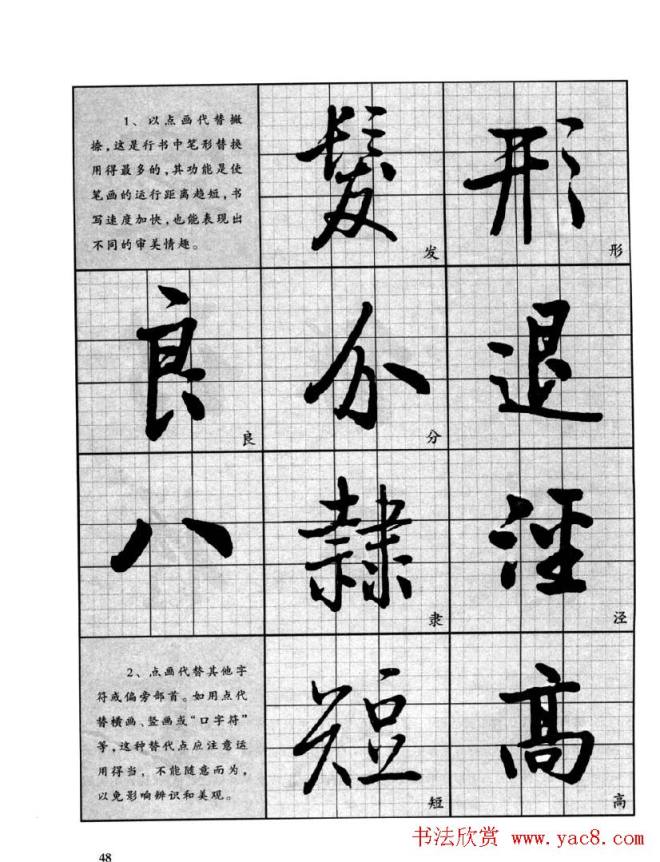 1、以点画代替撇
捺，这是行书中笔形替换
用得最多的，其功能是使
笔画的运行距离趋短，书
写速度加快，也能表现出
不同的审美情趣。
髮
发
形
形
良
良
分
分
退
八
隸
隶
涇
泾
2、点画代替其他字
符或偏旁部首。如用点代
替横画、竖画或“口字符”
等，这种替代点应注意运
用得当，不能随意而为，
以免影响辨识和美观。
短
短
高
高
48
书法欣赏 www.yac8.com